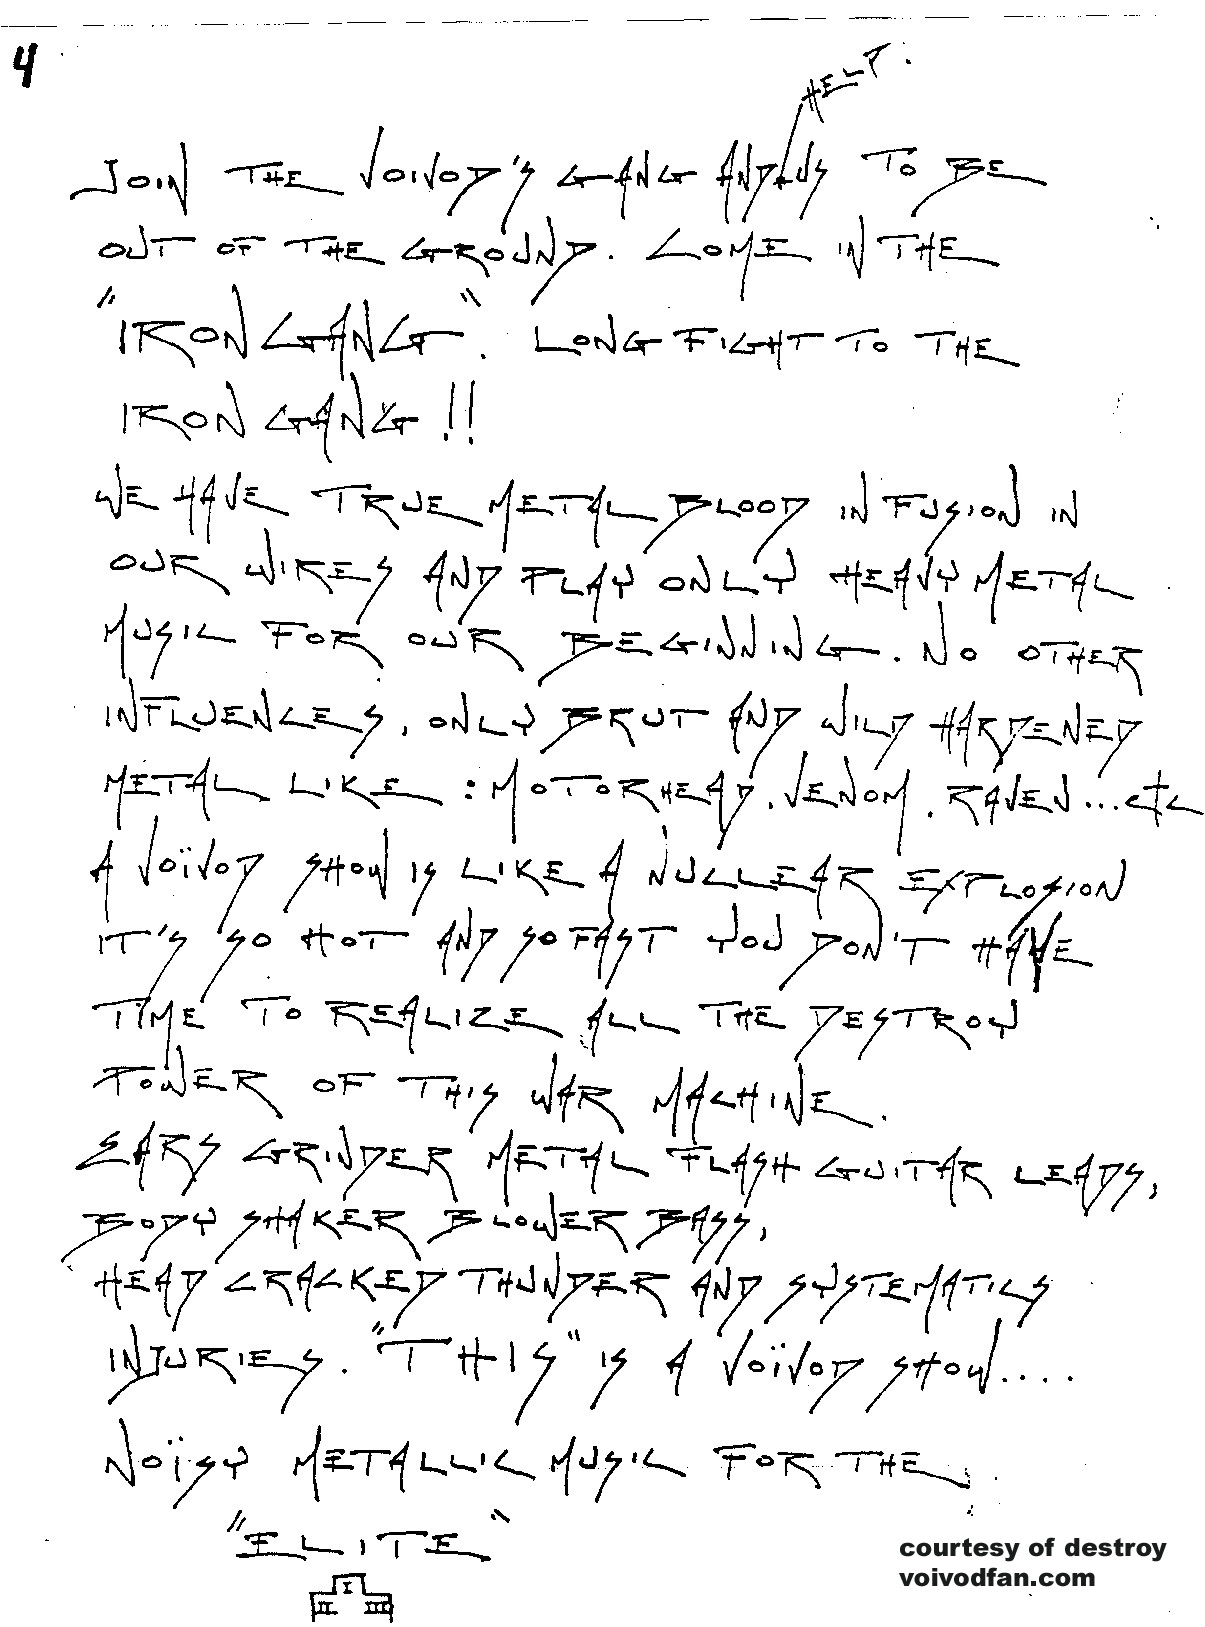 4
HELP.
JOIN THE VOIVOD'S GANG AND US TO BE
OUT OF THE GROUND. COME IN THE
"IRON GANG". LONG FIGHT TO THE
IRON GANG!!
WE HAVE TRUE METAL BLOOD IN FUSION IN
OUR WIRES AND PLAY ONLY HEAVY METAL
MUSIC FOR OUR BEGINNING. NO OTHER
INFLUENCES, ONLY BRUT AND WILD HARDENED
METAL LIKE : MOTORHEAD, VENOM, RAVEN...etc
A VOÏVOD SHOW IS LIKE A NUCLEAR EXPLOSION
IT'S SO HOT AND SO FAST YOU DON'T HAVE
TIME TO REALIZE ALL THE DESTROY
POWER OF THIS WAR MACHINE.
EARS GRINDER METAL FLASH GUITAR LEADS,
BODY SHAKER BLOWER BASS,
HEAD CRACKED THUNDER AND SYSTEMATICS
INJURIES. "THIS" IS A VOÏVOD SHOW....
NOÏSY METALLIC MUSIC FOR THE
"ELITE"
I
II III
courtesy of destroy
voivodfan.com